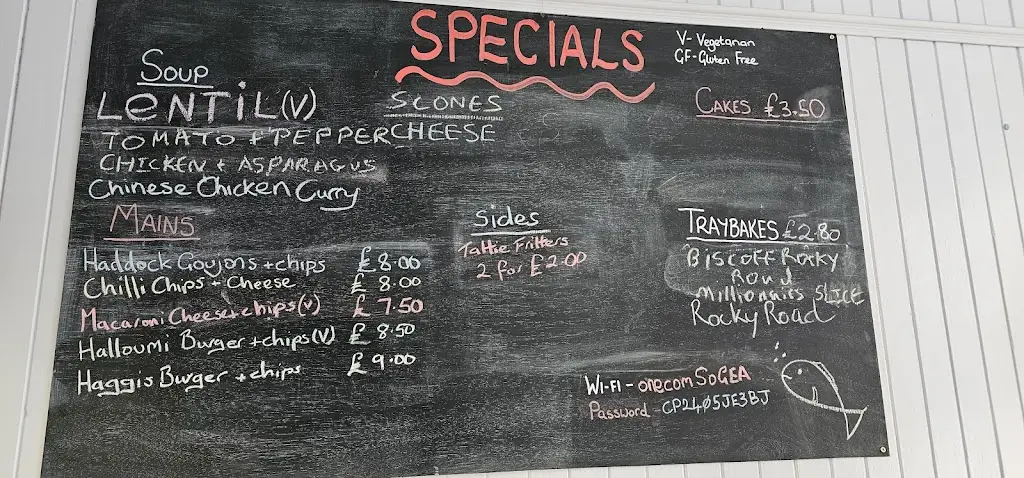 SPECIALS
V- Vegetarian
GF-Gluten Free
Soup
LENTiL(V)
TOMATO + PEPPER
CHICKEN + ASPARAGUS
Chinese Chicken Curry
SCONES
CHEESE
CAKES £3.50
MAINS
Haddock Goujons + chips £8.00
Chilli Chips + Cheese £8.00
Macaroni Cheese + chips (v) £7.50
Halloumi Burger + chips (V) £8.50
Haggis Burger + chips £9.00
Sides
Tattie Fritters
2 for £2.00
TRAYBAKES £2.80
Biscoff Rocky
Road
Millionairs SLICE
Rocky Road
Wi-Fi - onecom SoGEA
Password - CP2405JE3BJ